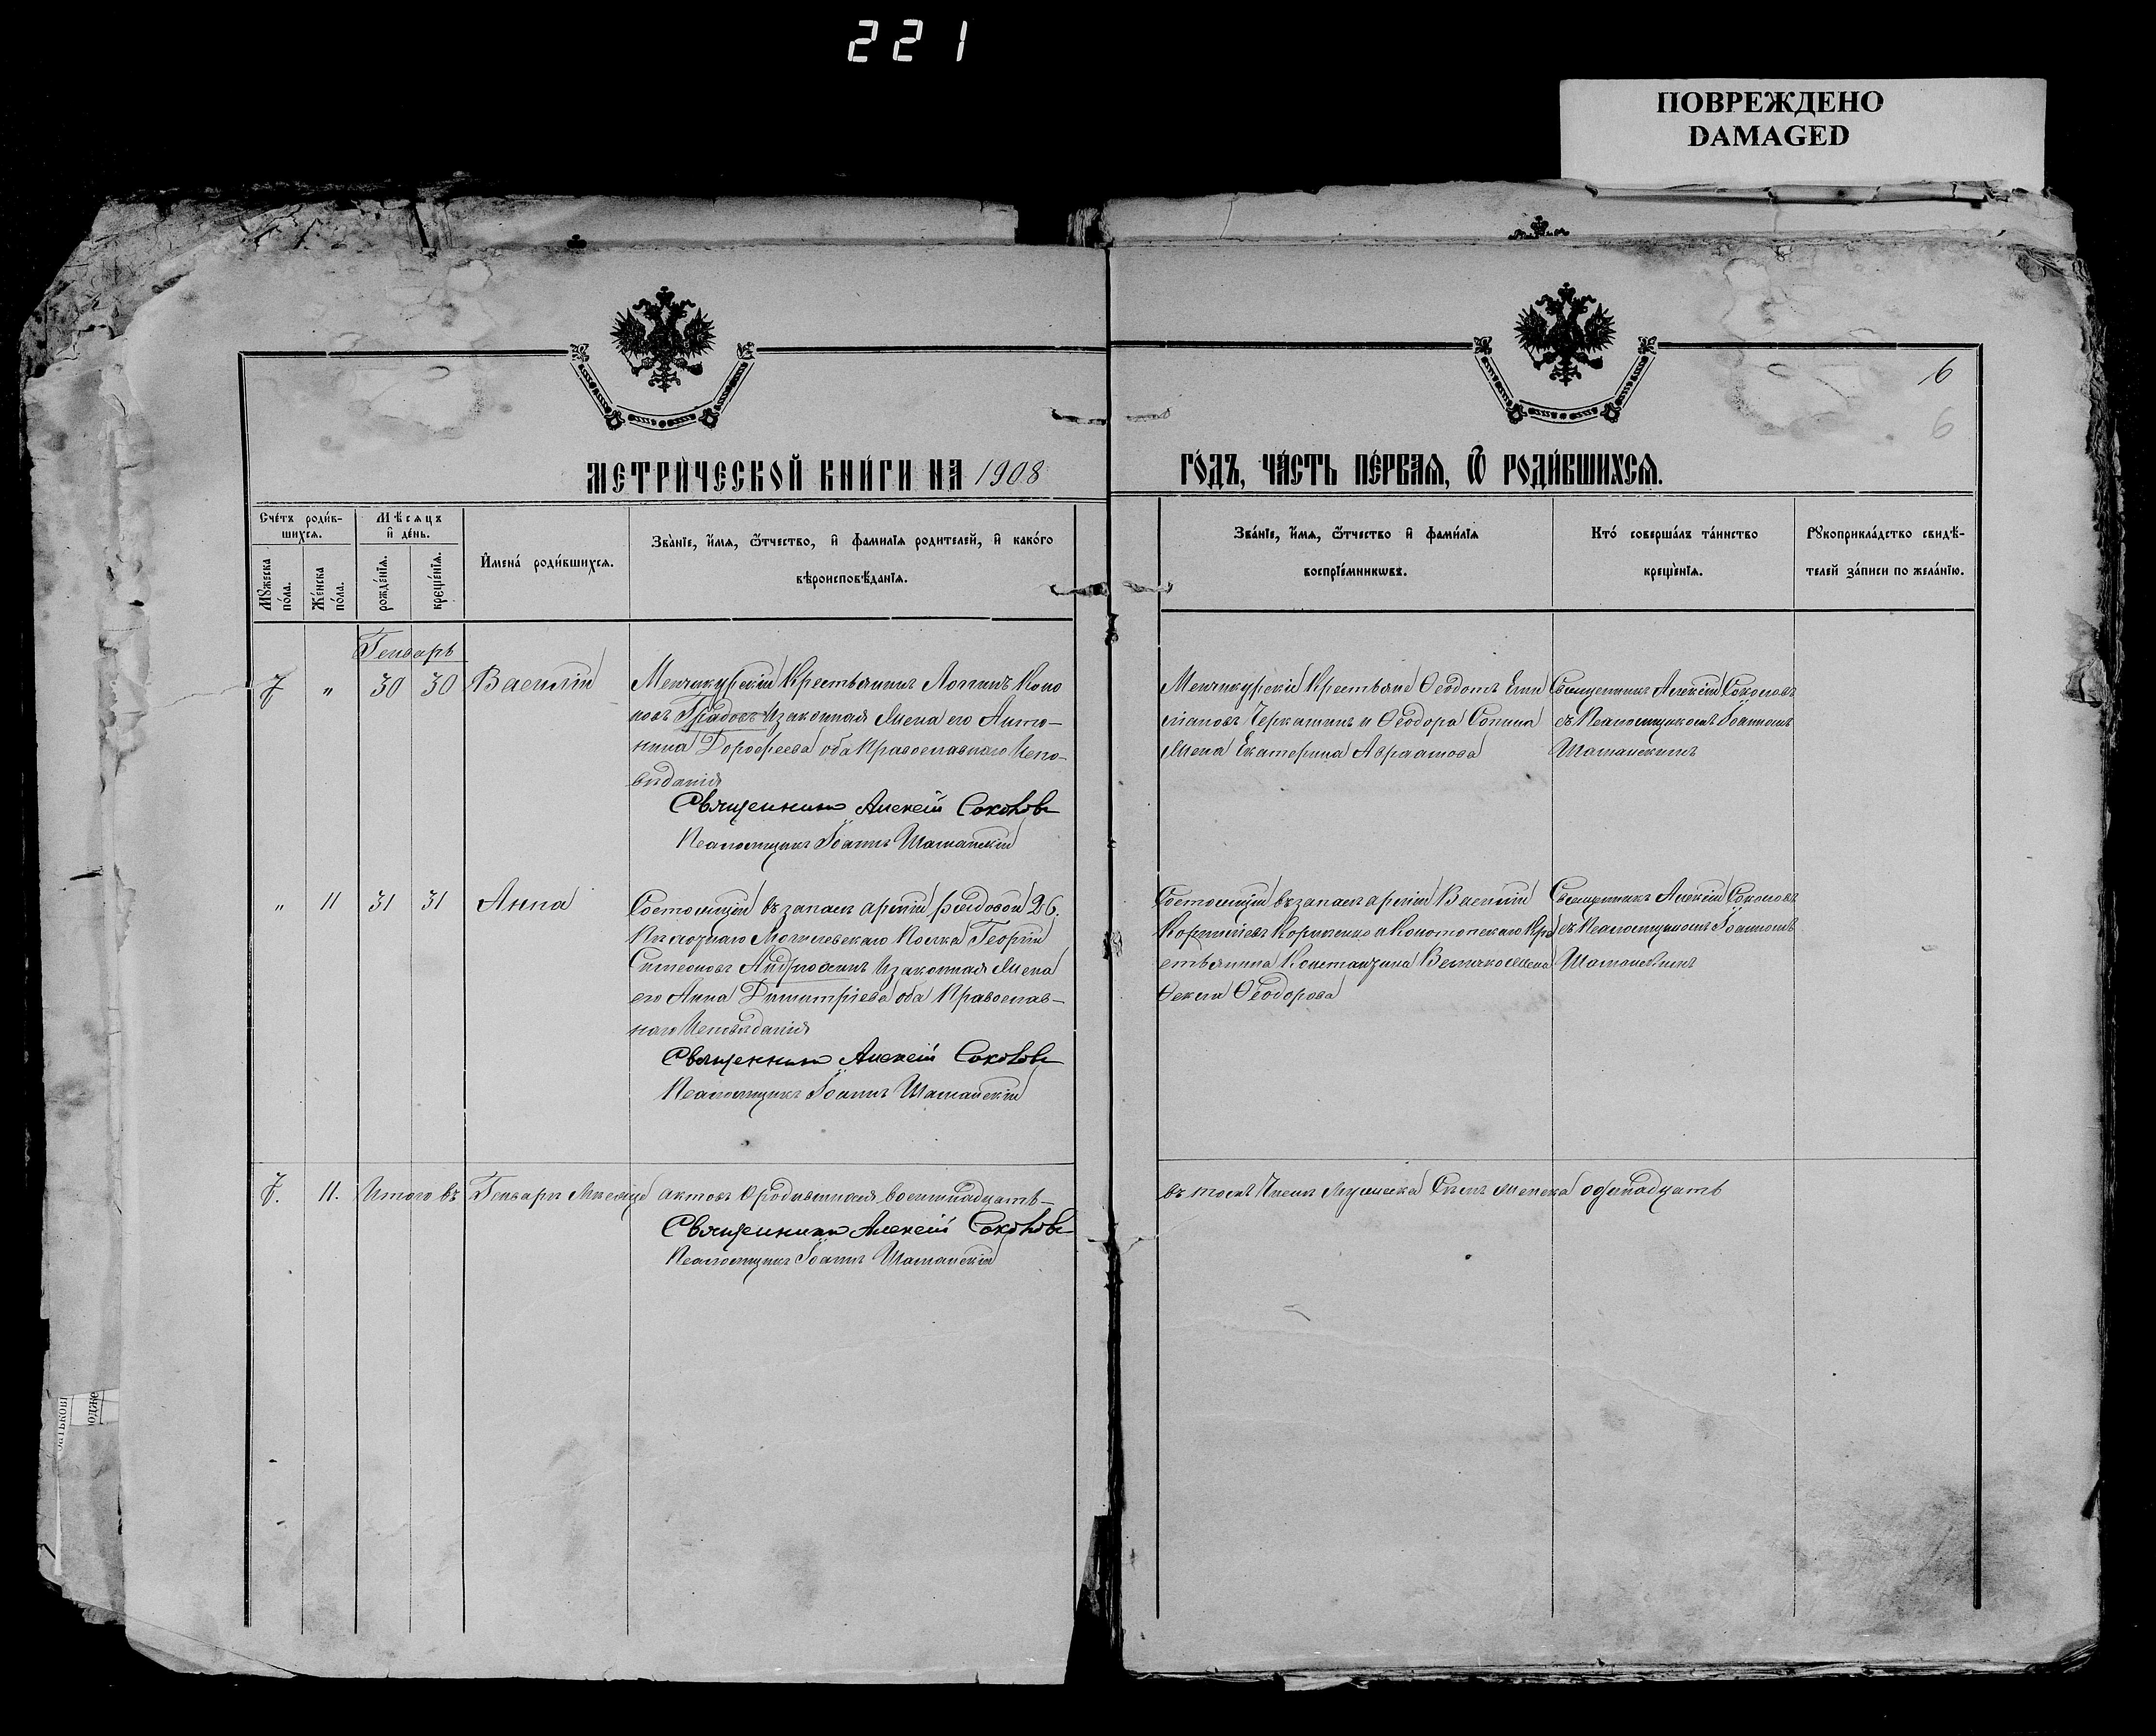 221
ПОВРЕЖДЕНО
DAMAGED
6
6
МЕТРИ́ЧЕСКОЙ КНИ́ГИ НА 1908
ГО́ДЪ, ЧА́СТЬ ПЕ́РВАЯ, Ѿ РОДИ́ВШИХСЯ.
Сче́тъ роди́в-
шихся.
Му́жеска по́ла.
Же́нска по́ла.
Мѣ́сяцъ
и҆ де́нь.
рожде́нїя.
креще́нїя.
И҆мена̀ роди́вшихся.
Зва́нїе, и҆́мя, ѻ҆́тчество, и҆ фами́лїя роди́телей, и҆ како́го
вѣроисповѣ́данїя.
Зва́нїе, и҆́мя, ѻ҆́тчество и҆ фами́лїя
воспрїе́мникωвъ.
Кто̀ соверша́лъ та́инство
креще́нїя.
Рꙋкоприкла́дство свидѣ́-
телей за́писи по жела́нїю.
Генварь
7 " 30 30 Василій
Менчикурскій Крестьянинъ Логинъ Коно
новъ Градовъ и законная жена его Анто-
нина Дорофеева оба Православнаго Испо-
вѣданія
Священникъ Алексій Соколовъ
Псаломщикъ Іоаннъ Шаманскій
Менчикурскіи Крестьяне Ѳеодотъ Еми
ліановъ Черкашинъ и Ѳеодора Сонина
жена Екатерина Авраамова
Священникъ Алексій Соколовъ
съ Псаломщикомъ Іоанномъ
Шаманскимъ
" 11 31 31 Анна
Состоящій въ запасѣ арміи рядовой 26.
Пѣхотнаго Могилевскаго Полка Георгій
Симеоновъ Андрюхинъ и законная жена
его Анна Димитріева оба Православ-
наго Исповѣданія
Священникъ Алексій Соколовъ
Псаломщикъ Іоаннъ Шаманскій
Состоящій въ запасѣ арміи Василій
Корниліевъ Корниенко и Конотопскаго Кре
стьянина Константина Величко жена
Ѳекла Ѳеодорова
Священникъ Алексій Соколовъ
съ Псаломщикомъ Іоанномъ
Шаманскимъ
7. 11. Итого въ Генварѣ Мѣсяцѣ актовъ о родившихся восемнадцать-
въ томъ Числѣ Мужеска Семь женска одинадцать
Священникъ Алексій Соколовъ
Псаломщикъ Іоаннъ Шаманскій